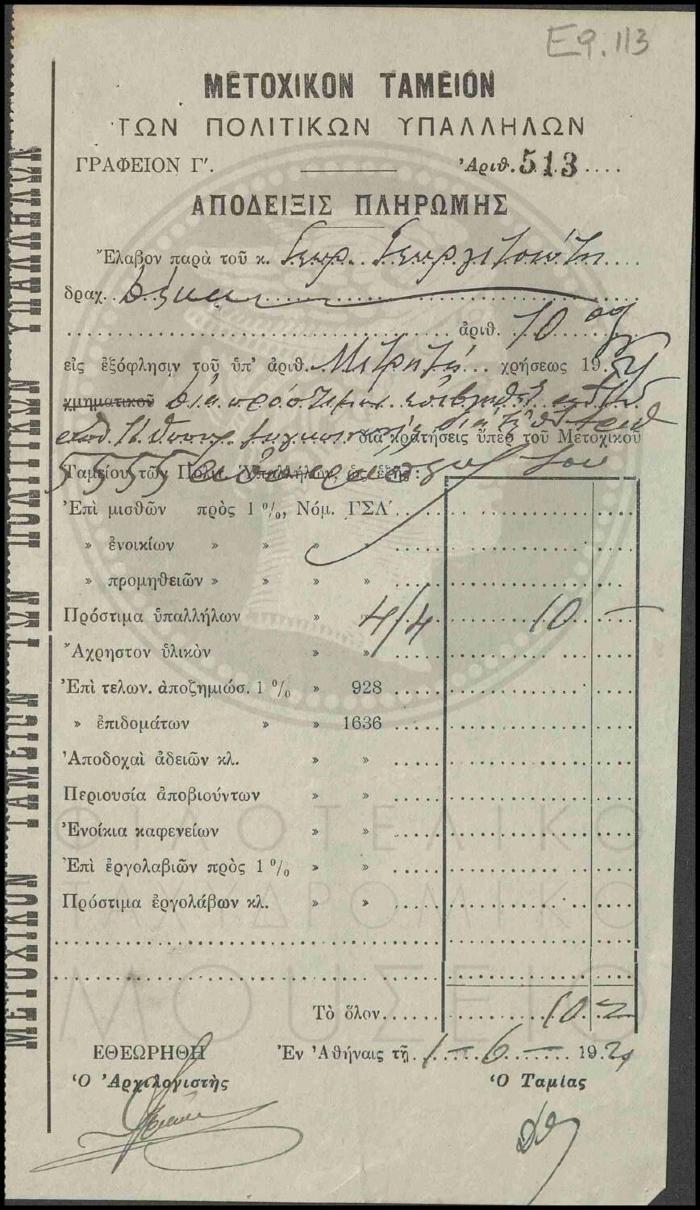 Εφ. 113
ΜΕΤΟΧΙΚΟΝ ΤΑΜΕΙΟΝ
ΤΩΝ ΠΟΛΙΤΙΚΩΝ ΥΠΑΛΛΗΛΩΝ
ΓΡΑΦΕΙΟΝ Γ΄. Ἀριθ. 513
ΑΠΟΔΕΙΞΙΣ ΠΛΗΡΩΜΗΣ
Ἔλαβον παρὰ τοῦ κ. Γεωρ.
δραχ. δέκα
ἀριθ. 10
εἰς ἐξόφλησιν τοῦ ὑπ' ἀριθ. χρήσεως 19
χρηματικοῦ
διὰ κρατήσεις ὑπὲρ τοῦ Μετοχικοῦ
Ταμείου τῶν Πολιτ. Ὑπαλλήλων, ὡς ἑξῆς:
5555
Ἐπὶ μισθῶν πρὸς 1 %, Νόμ. ΓΣΛ΄
» ἐνοικίων » » » »
» προμηθειῶν » » » »
Πρόστιμα ὑπαλλήλων » 4/4 10 —
Ἄχρηστον ὑλικὸν » »
Ἐπὶ τελων. ἀποζημιώσ. 1 % » 928
» ἐπιδομάτων » » 1636
Ἀποδοχαὶ ἀδειῶν κλ. » »
Περιουσία ἀποβιούντων » »
Ἐνοίκια καφενείων » »
Ἐπὶ ἐργολαβιῶν πρὸς 1 % » »
Πρόστιμα ἐργολάβων κλ. » »
Τὸ ὅλον 10
ΕΘΕΩΡΗΘΗ Ἐν Ἀθήναις τῇ 1 - 6 - 192
Ὁ Ἀρχιλογιστὴς Ὁ Ταμίας
ΜΕΤΟΧΙΚΟΝ ΤΑΜΕΙΟΝ ΤΩΝ ΠΟΛΙΤΙΚΩΝ ΥΠΑΛΛΗΛΩΝ
ΦΙΛΟΤΕΛΙΚΟ
ΤΑΧΥΔΡΟΜΙΚΟ
ΜΟΥΣΕΙΟ